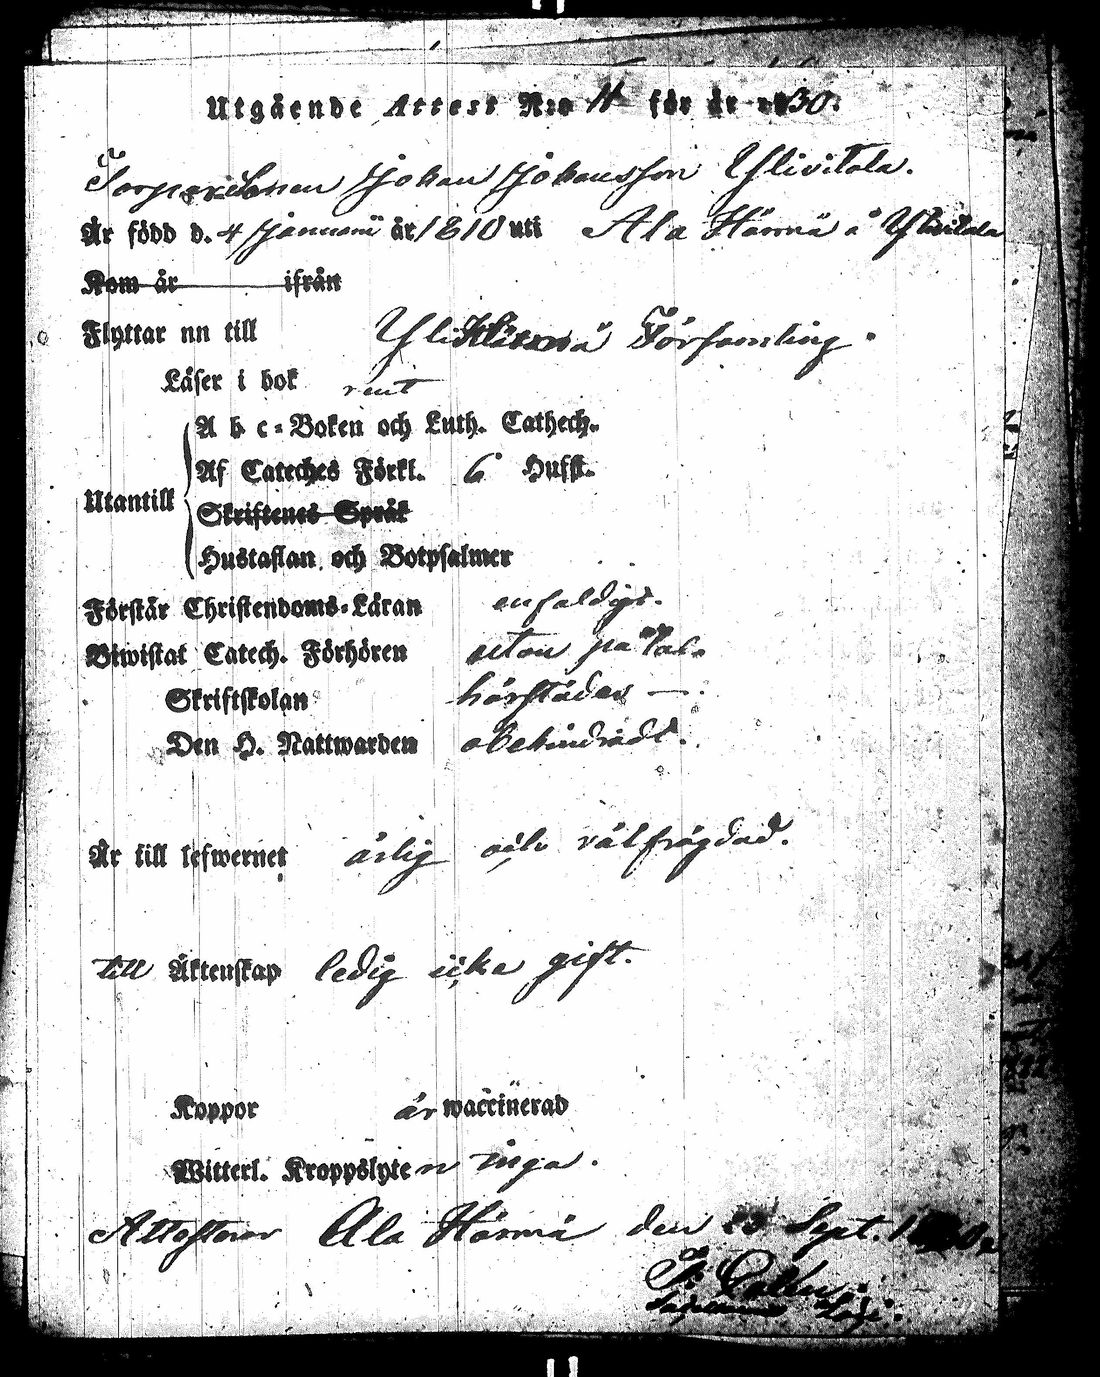 Utgående Attest N:o 11 för år 1830.
Torparesonen Johan Johansson Ylivitala.
Är född d. 4 Januarii år 1810 uti Ala Härmä å Ylivitala
Kom år ifrån
Flyttar nn till Yli Härmä Församling.
Läser i bok rent
Utantill
A b c-Boken och Luth. Cathech.
Af Cateches Förkl. 6 Hufst.
Skriftenes Språk
Hustaflan och Botpsalmer
Förstår Christendoms-Läran enfaldigt.
Biwistat Catech. Förhören utan på
Skriftskolan härstädes —
Den H. Nattwarden obehindradt.
Är till lefwernet ärlig och välfrägdad.
till Äktenskap ledig icke gift.
Koppor är waccinerad
Witterl. Kroppslyten inga.
Attesterar Ala Härmä den Sept.